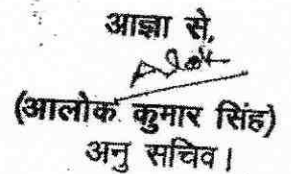 आज्ञा से,
(आलोक कुमार सिंह)
अनु सचिव।